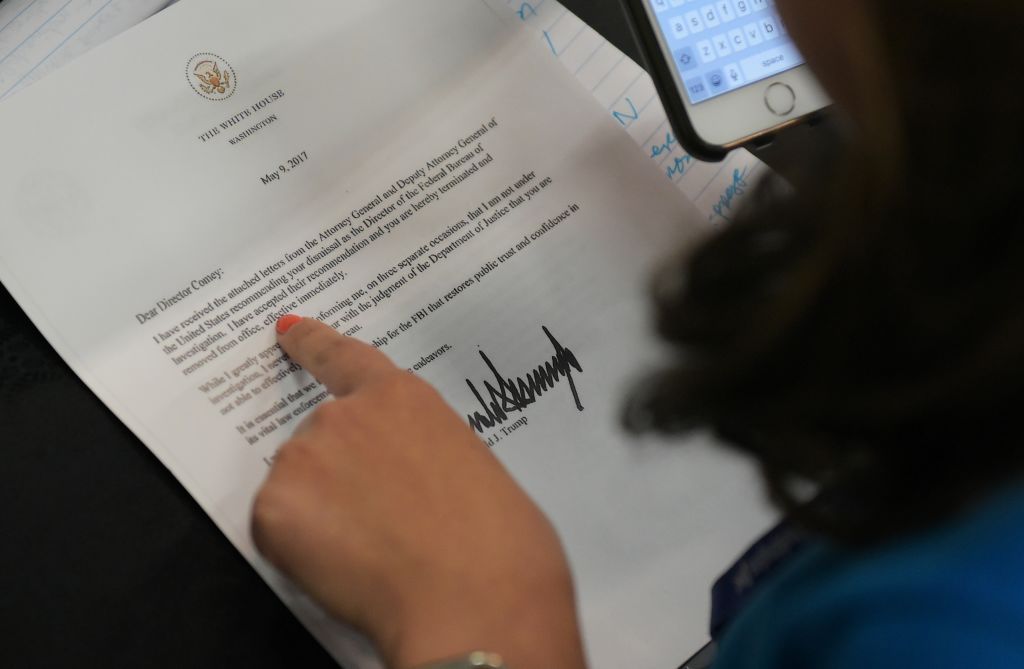 THE WHITE HOUSE
WASHINGTON
May 9, 2017
Dear Director Comey:
I have received the attached letters from the Attorney General and Deputy Attorney General of
the United States recommending your dismissal as the Director of the Federal Bureau of
Investigation. I have accepted their recommendation and you are hereby terminated and
removed from office, effective immediately.
While I greatly informing me, on three separate occasions, that I am not under
investigation, I with the judgment of the Department of Justice that you are
not able to effectively
It is essential that we for the FBI that restores public trust and confidence in
its vital law
endeavors.
J. Trump
a s d f g h
z x c v b
123 space
N